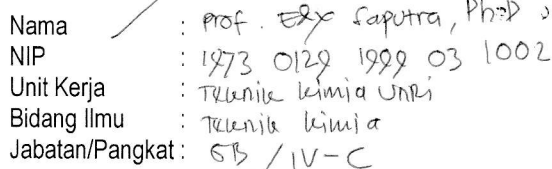 Nama : Prof. Edy Saputra, Ph.D
NIP : 1973 0129 1999 03 1002
Unit Kerja : Teknik kimia UNRi
Bidang Ilmu : Teknik kimia
Jabatan/Pangkat : GB / IV-C